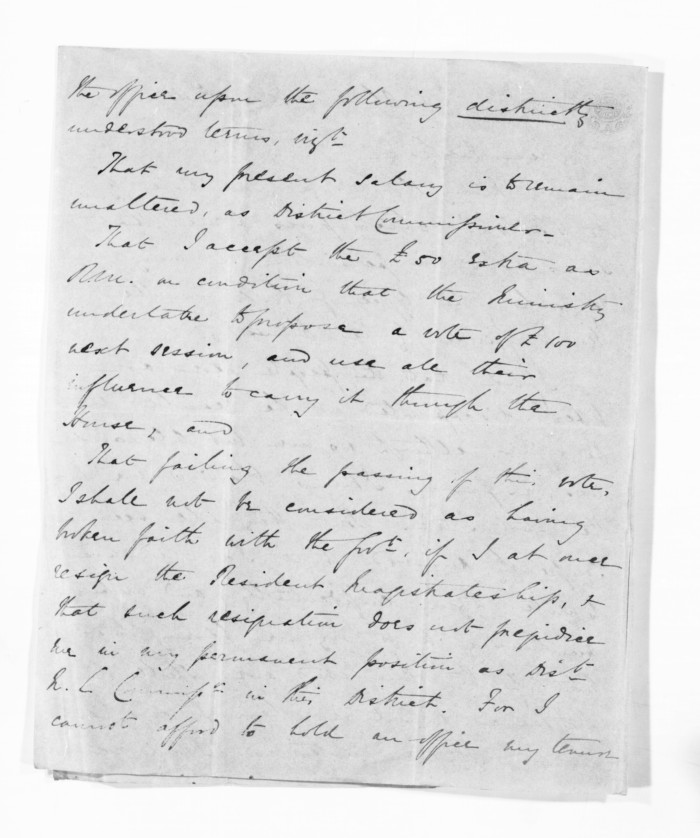 the office upon the following distinctly
understood terms, vizt
That my present salary is to remain
unaltered, as District Commissioner.
That I accept the £50 extra as
R.M. on condition that the Ministry
undertake to propose a vote of £100
next session, and use all their
influence to carry it through the
House, and
That failing the passing of this vote,
I shall not be considered as having
broken faith with the Govt. if I at once
resign the Resident Magistrateship, &
that such resignation does not prejudice
me in my permanent position as Distt
L. C Commissr in this District. For I
cannot afford to hold an office my tenure